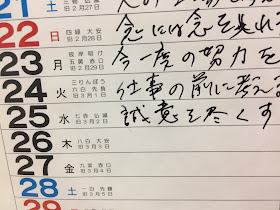 21 土 仏滅 旧2月27日
22 日 四緑 大安 旧2月28日 念には念を入れ
23 月 彼岸明け 五黄 赤口 旧2月29日 今一度の努力を
24 火 三りんぼう 六白 先負 旧3月1日 仕事の前に考え
25 水 七赤 仏滅 旧3月2日 誠意を尽くす
26 木 八白 大安 旧3月3日
27 金 九紫 赤口 旧3月4日
28 土 一白 先勝 旧3月5日